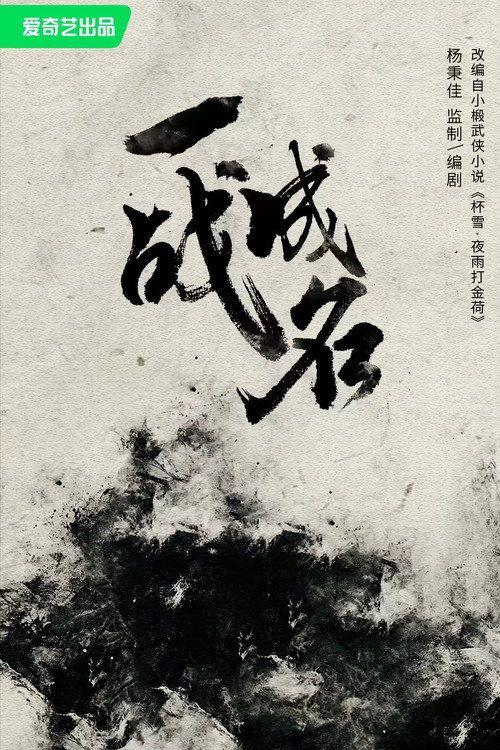 爱奇艺出品
一战成名
改编自小椴武侠小说《杯雪·夜雨打金荷》
杨秉佳 监制/编剧